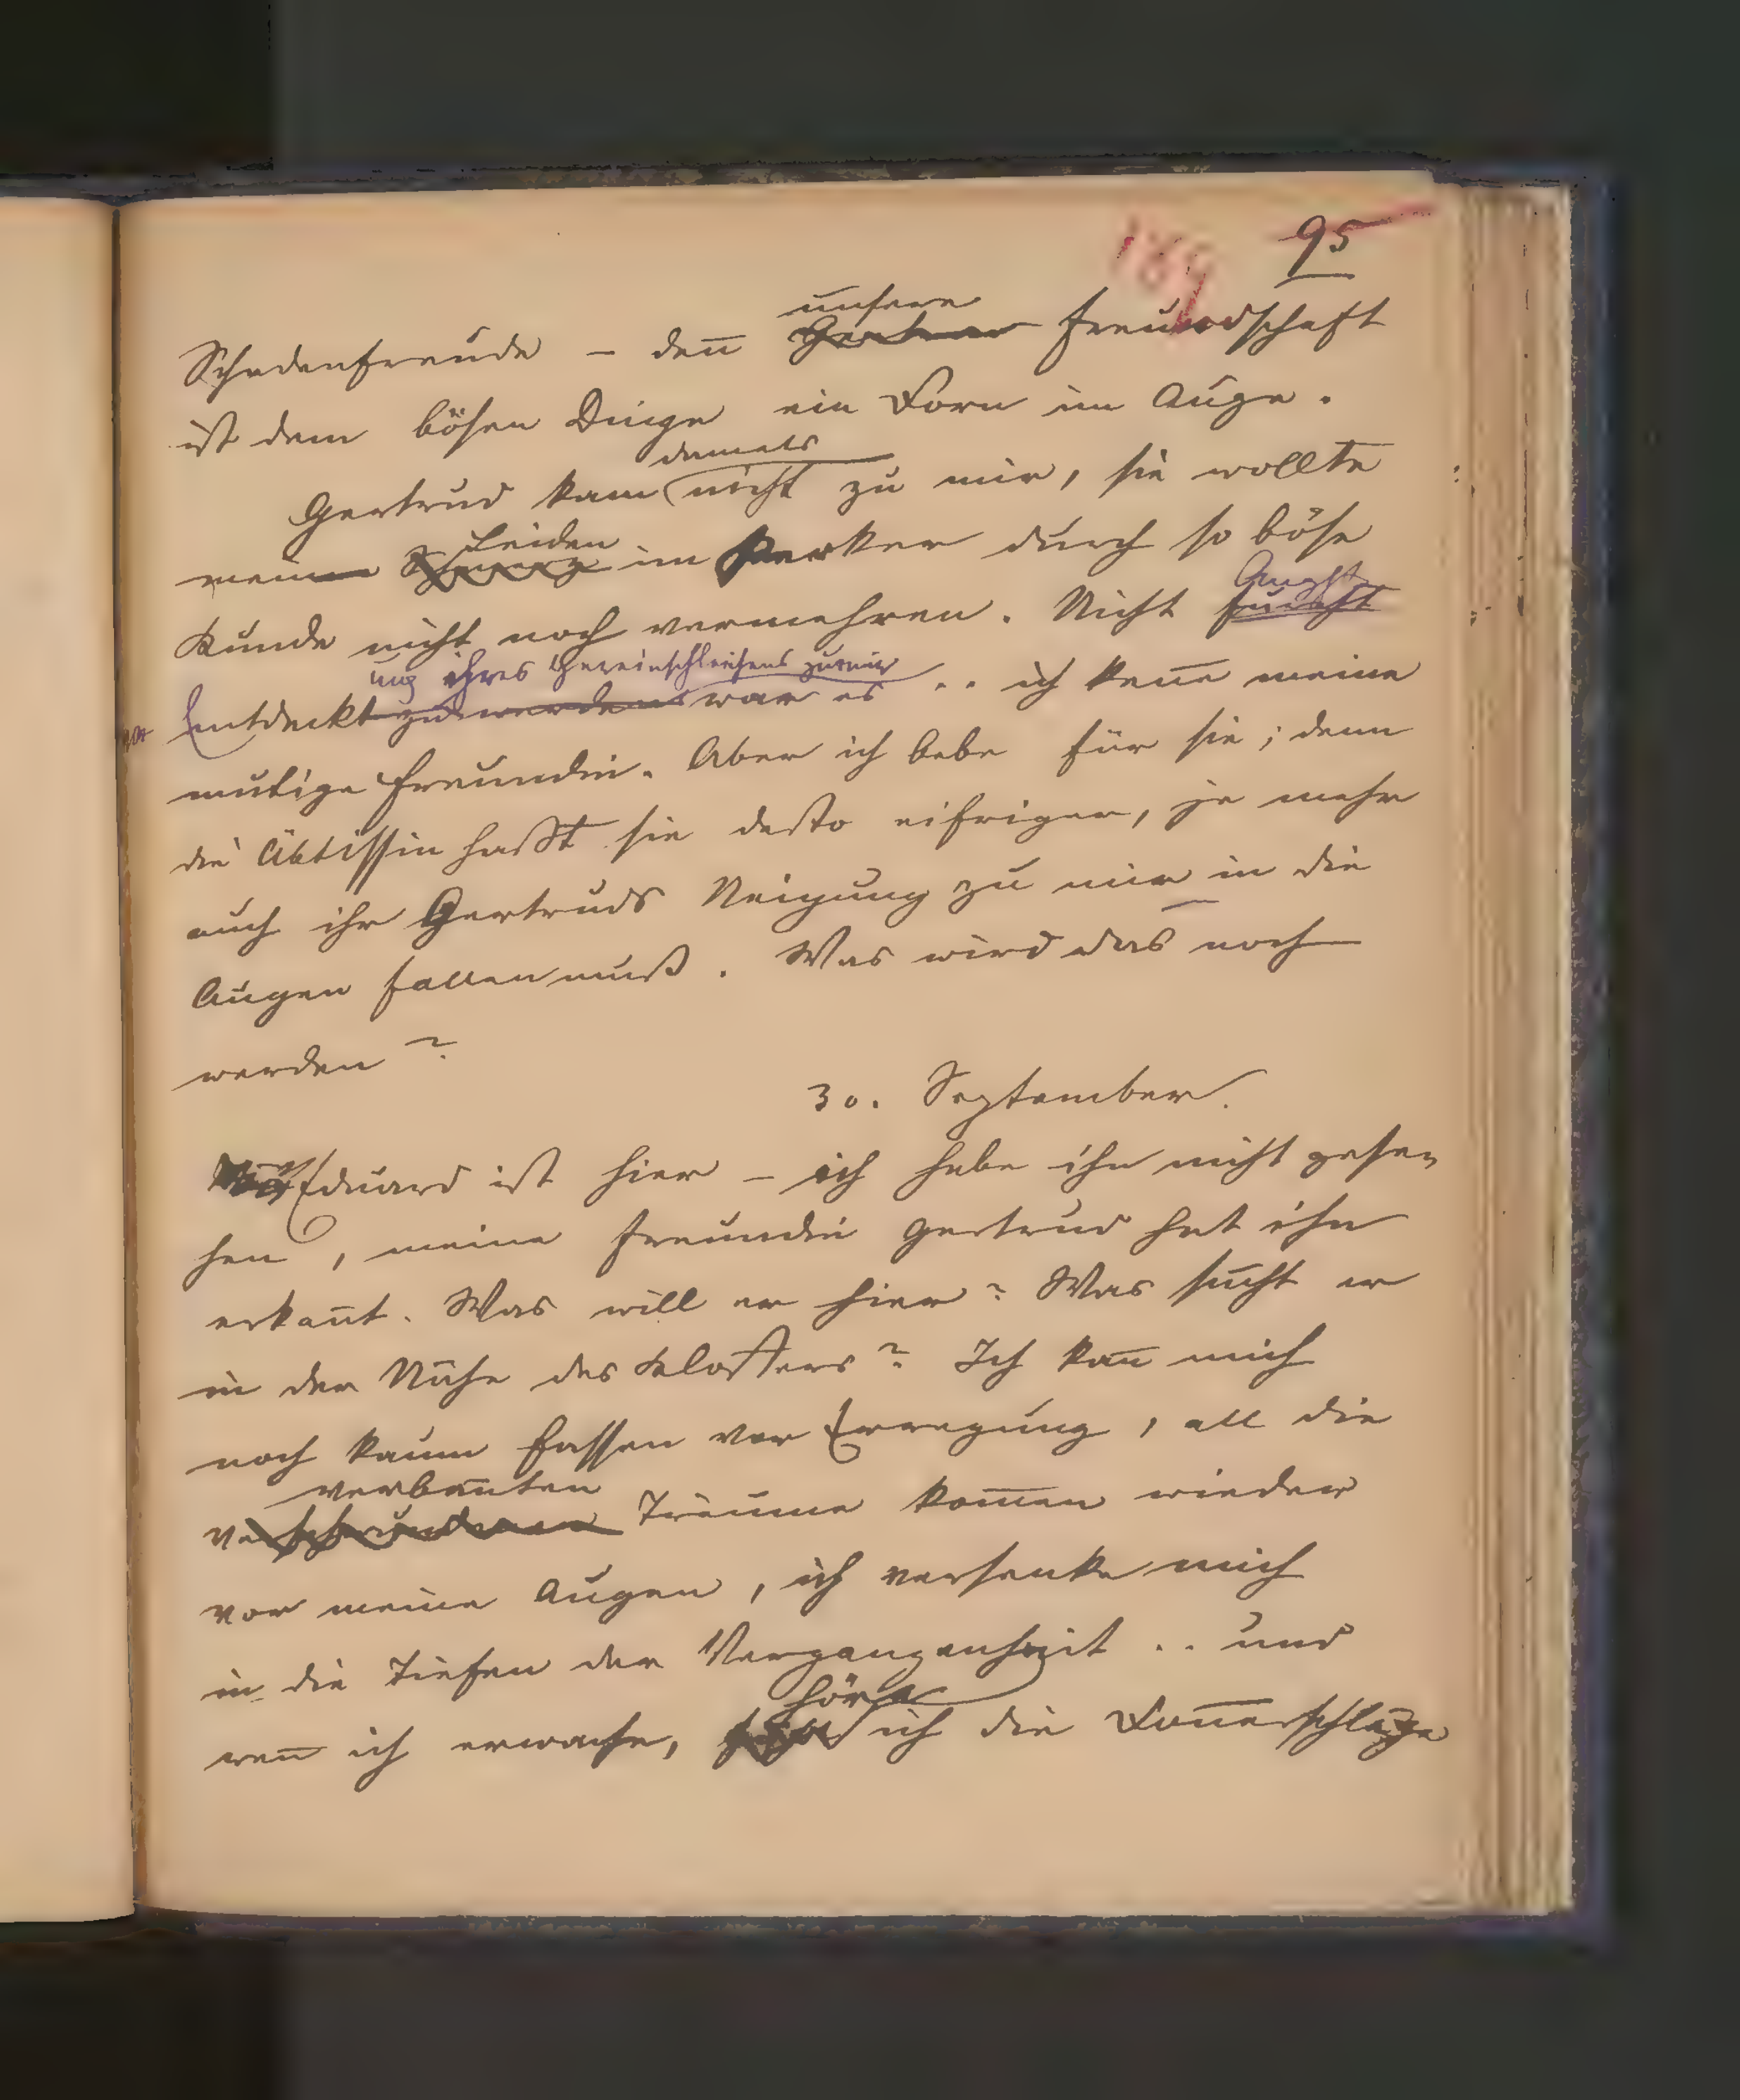 189 95
unsere
Schadenfreude – deñ Freundschaft
ist dem bösen Dinge ein Dorn im Auge.
damals
Gertrud kam nicht zu mir, sie wollte
Leiden
mein Schmerz im Kerker durch so böse
Angst
Kunde nicht noch vermehren. Nicht Furcht
ung ihres Hereinschleichens zu mir
vor Entdeckt zu werden war es .. ich keñe meine
mutige Freundin. Aber ich bebe für sie; denn
die Äbtissin haßt sie desto eifriger, je mehr
auch ihr Gertruds Neigung zu mir in die
Augen fallen muß. Was wird das noch
werden?
30. September.
Eduard ist hier – ich habe ihn nicht gese-
hen, meine Freundin Gertrud hat ihn
erkañt. Was will er hier? Was sucht er
in der Nähe des Klosters? Ich kañ mich
noch kaum fassen vor Erregung, all die
verbañten
verschwundenen Träume kom̄en wieder
vor meine Augen, ich versenke mich
in die Tiefen der Vergangenheit .. und
höre
weñ ich erwache, ich die Doñerschläge